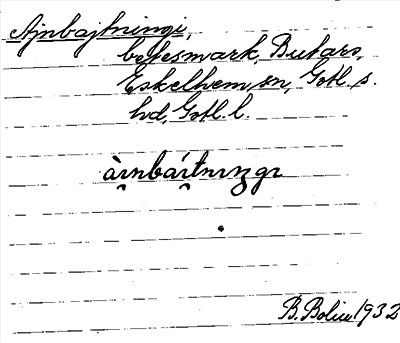 Ajnbajtningi,
betesmark, Butars,
Eskelhem, sn, Gotl. s.
hd, Gotl. l.
àɪ̯nbáɪ̯tnɪŋgɪ
B. Bolin 1932